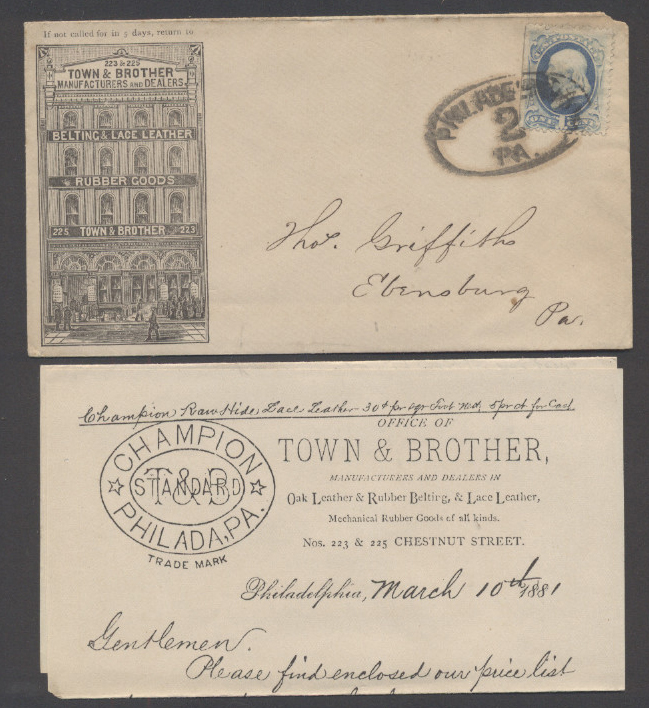 If not called for in 5 days, return to
223 & 225
TOWN & BROTHER
MANUFACTURERS AND DEALERS.
BELTING & LACE LEATHER
RUBBER GOODS
225 TOWN & BROTHER 223
PHILADE
2
PA.
Thos. Griffiths
Ebensburg
Pa.
Champion Raw Hide Lace Leather 30¢ pr sqr Foot Net, 5 pr ct for Cash
CHAMPION
T&B
STANDARD
PHILADA, PA.
TRADE MARK
OFFICE OF
TOWN & BROTHER,
MANUFACTURERS AND DEALERS IN
Oak Leather & Rubber Belting, & Lace Leather,
Mechanical Rubber Goods of all kinds.
Nos. 223 & 225 CHESTNUT STREET.
Philadelphia, March 10th 1881
Gentlemen.
Please find enclosed our price list